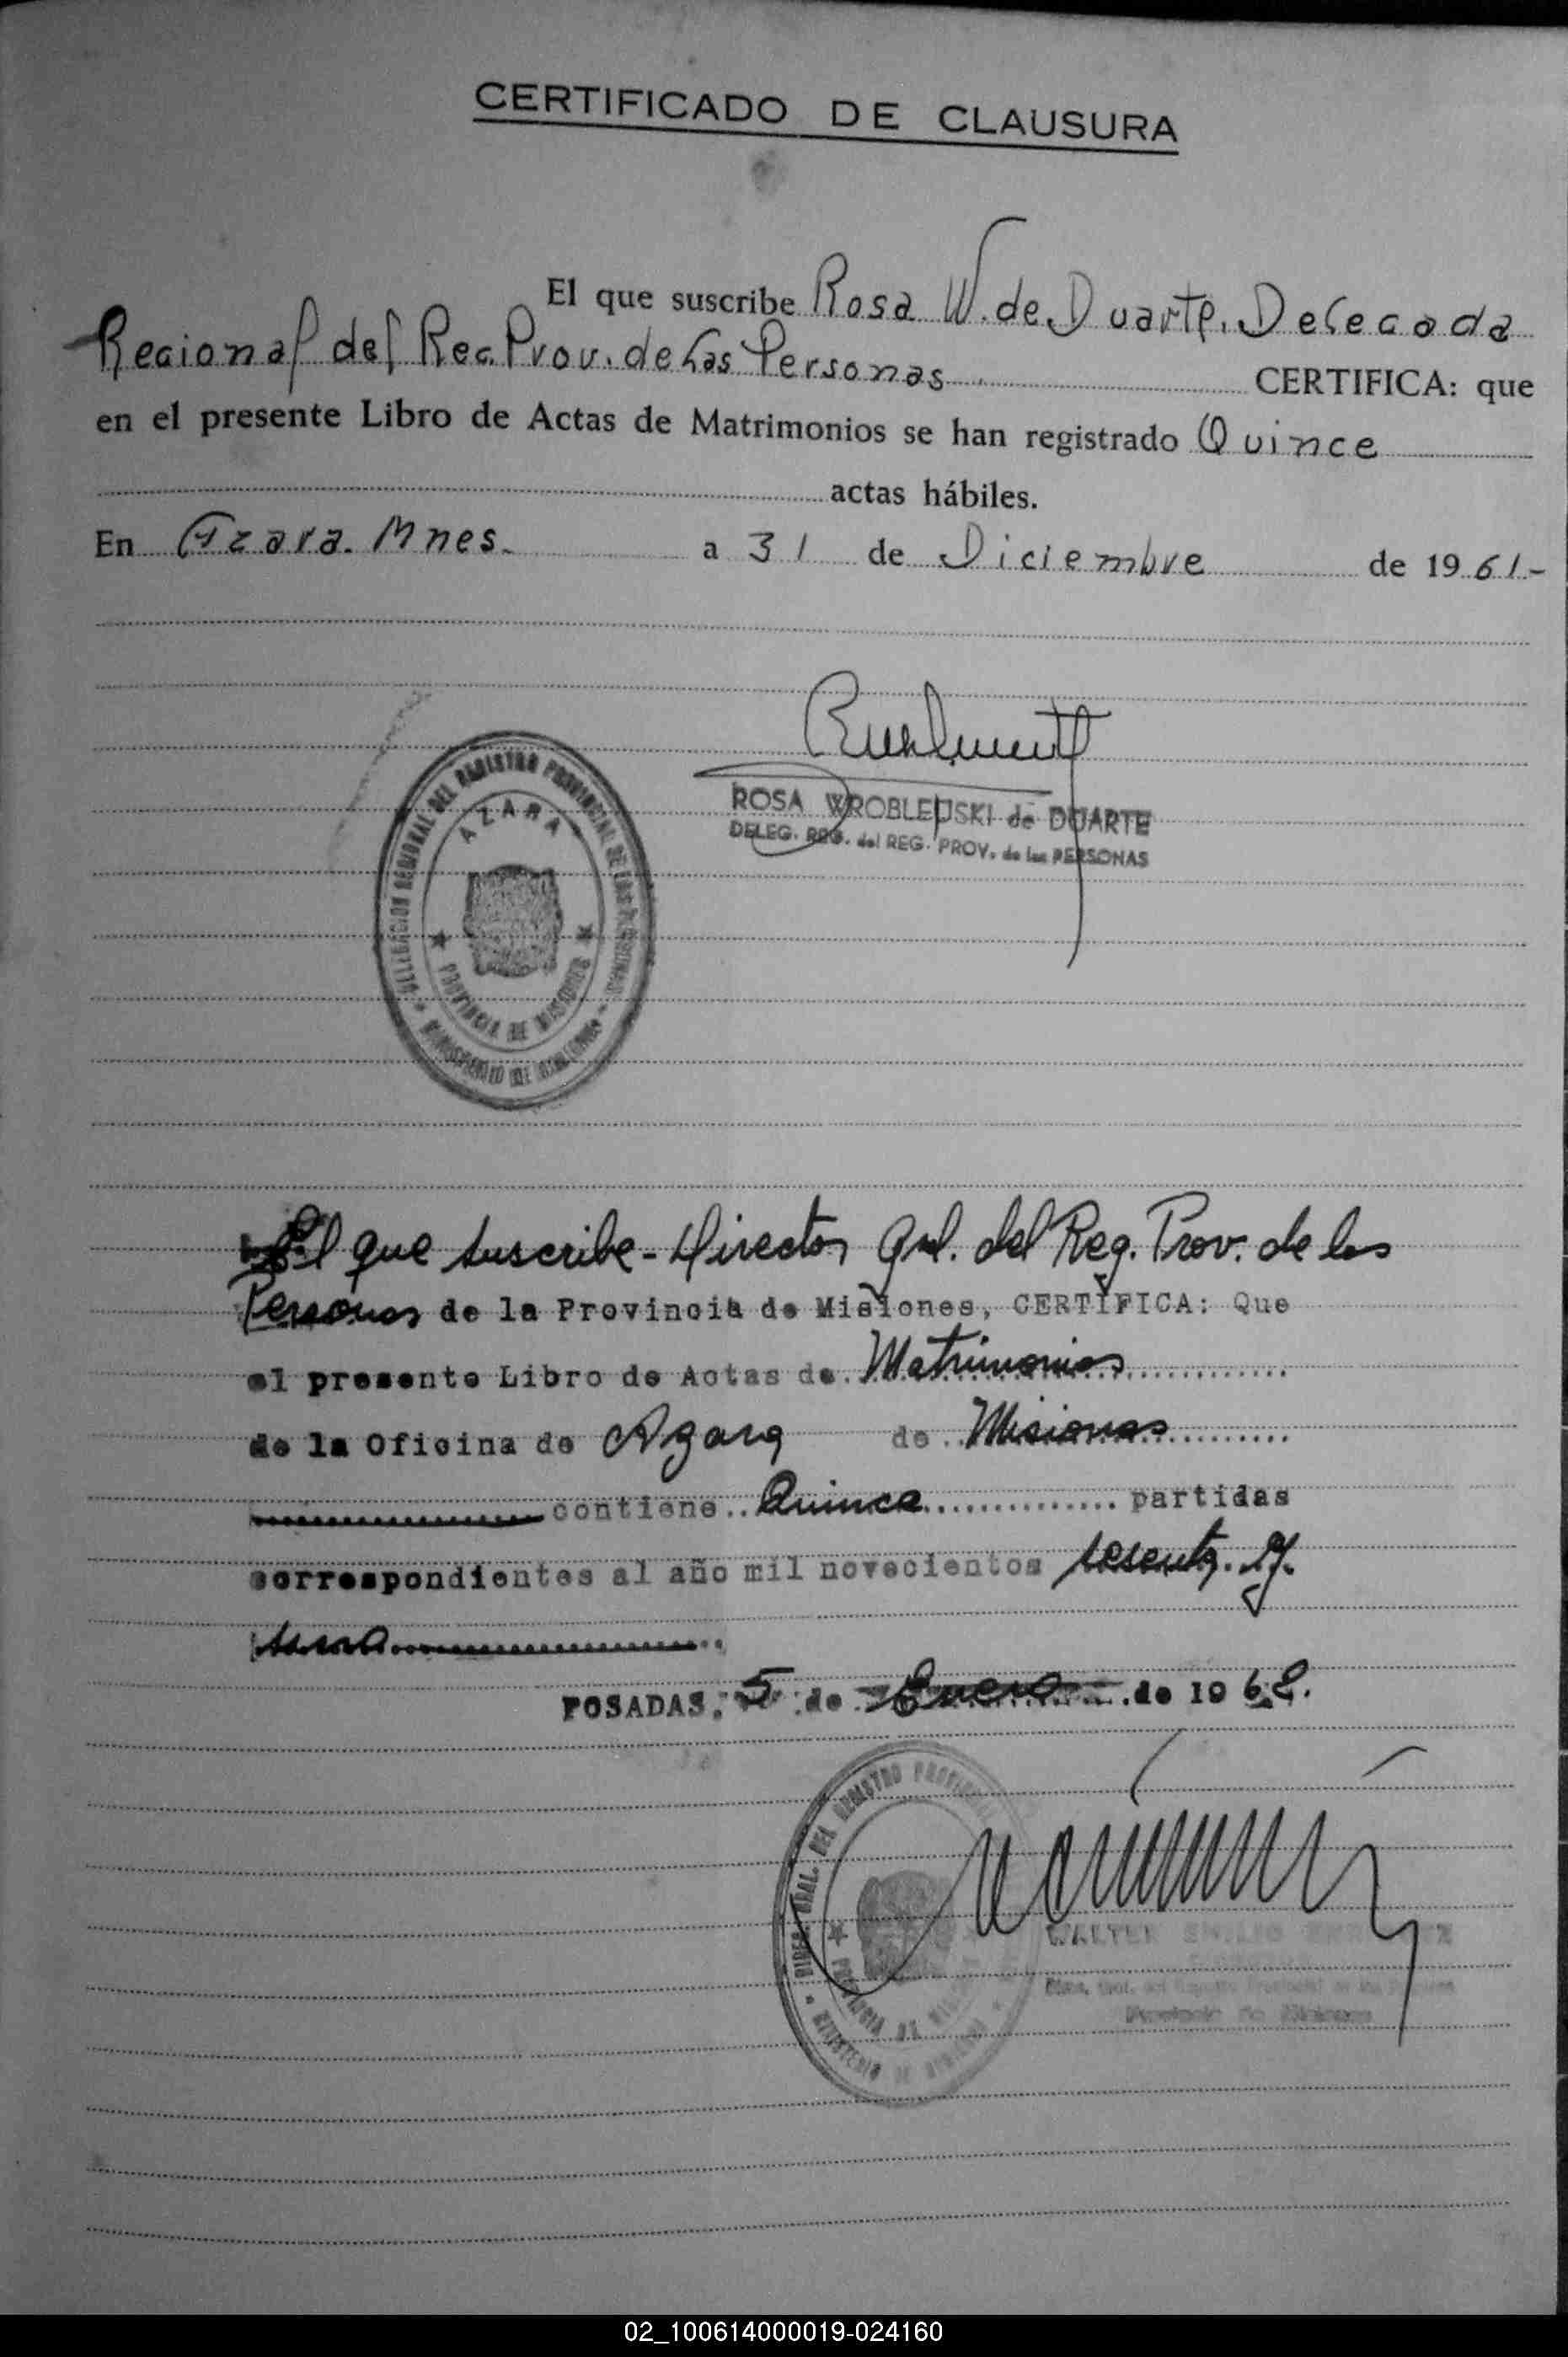 CERTIFICADO DE CLAUSURA
El que suscribe Rosa W. de Duarte. Delegada
Regional del Reg. Prov. de las Personas CERTIFICA: que
en el presente Libro de Actas de Matrimonios se han registrado Quince
actas hábiles.
En Azara. Mnes. a 31 de Diciembre de 1961.-
DELEGACION REGIONAL DEL REGISTRO PROVINCIAL DE LAS PERSONAS
AZARA
PROVINCIA DE MISIONES
MINISTERIO DE GOBIERNO
ROSA WROBLEUSKI de DUARTE
DELEG. REG. del REG. PROV. de las PERSONAS
El que suscribe - Director Gral. del Reg. Prov. de las
Personas de la Provincia de Misiones, CERTIFICA: Que
el presente Libro de Actas de Matrimonios
de la Oficina de Azara de Misiones
contiene Quince partidas
correspondientes al año mil novecientos sesenta y
uno
POSADAS, 5 de Enero de 1962.
DIREC. GRAL. DEL REGISTRO PROVINCIAL
PROVINCIA DE MISIONES
MINISTERIO DE GOBIERNO
WALTER EMILIO
Provincia de Misiones
02_100614000019-024160